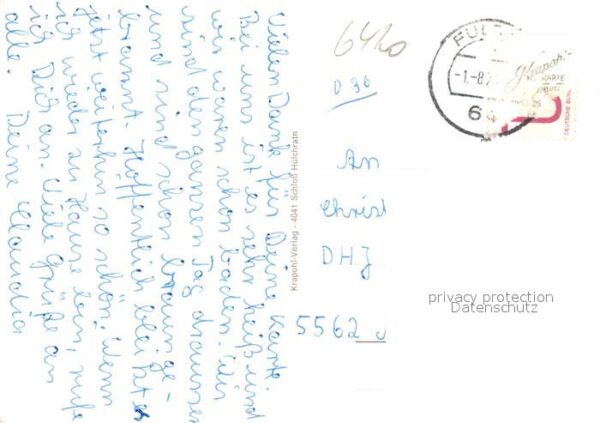 Vielen Dank für Deine Karte.
Bei uns ist es sehr heiß und
wir waren schon baden. Wir
sind den ganzen Tag draussen
und sind schon braun ge-
brannt. Hoffentlich bleibt es
jetzt weiterhin so schön. Wenn
ich wieder zu Hause bin, rufe
ich Dich an. Viele Grüße an
alle. Deine Claudia
Krapohl-Verlag - 4041 Schloß Hülchrath
6420
D 36
An
Christ
DHJ
5562
FUL
-1.-8.7
64
Krapohl
KARTE
DEUTSCHE BUND
privacy protection
Datenschutz